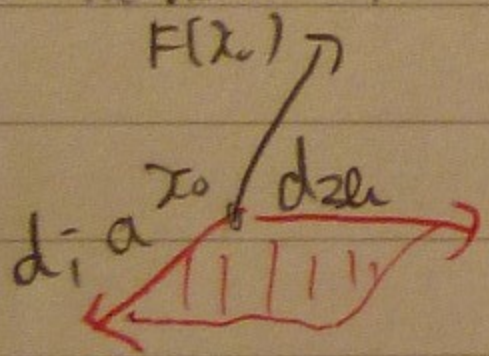 F(x)
x₀ d₂e
d₁a